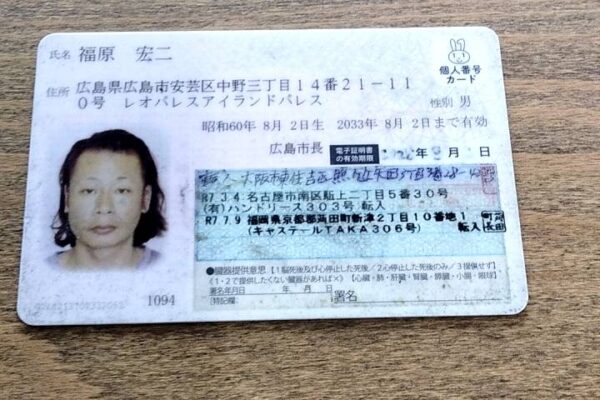 氏名 福原 宏二
個人番号
カード
住所 広島県広島市安芸区中野三丁目14番21-11
0号 レオパレスアイランドパレス
性別 男
昭和60年 8月 2日生 2033年 8月 2日まで有効
広島市長
電子証明書
の有効期限
年 月 日
R7.3.4 名古屋市南区駈上二丁目5番30号
(有)ハンドリース303号 転入
R7.7.9 福岡県京都郡苅田町新津2丁目10番地1
(キャステールTAKA306号) 転入
●臓器提供意思【1脳死後及び心停止した死後/2心停止した死後のみ/3提供せず】
《1・2で提供したくない臓器があれば×》【心臓・肺・肝臓・腎臓・膵臓・小腸・眼球】
署名年月日 年 月 日
[特記欄: 署名
1094